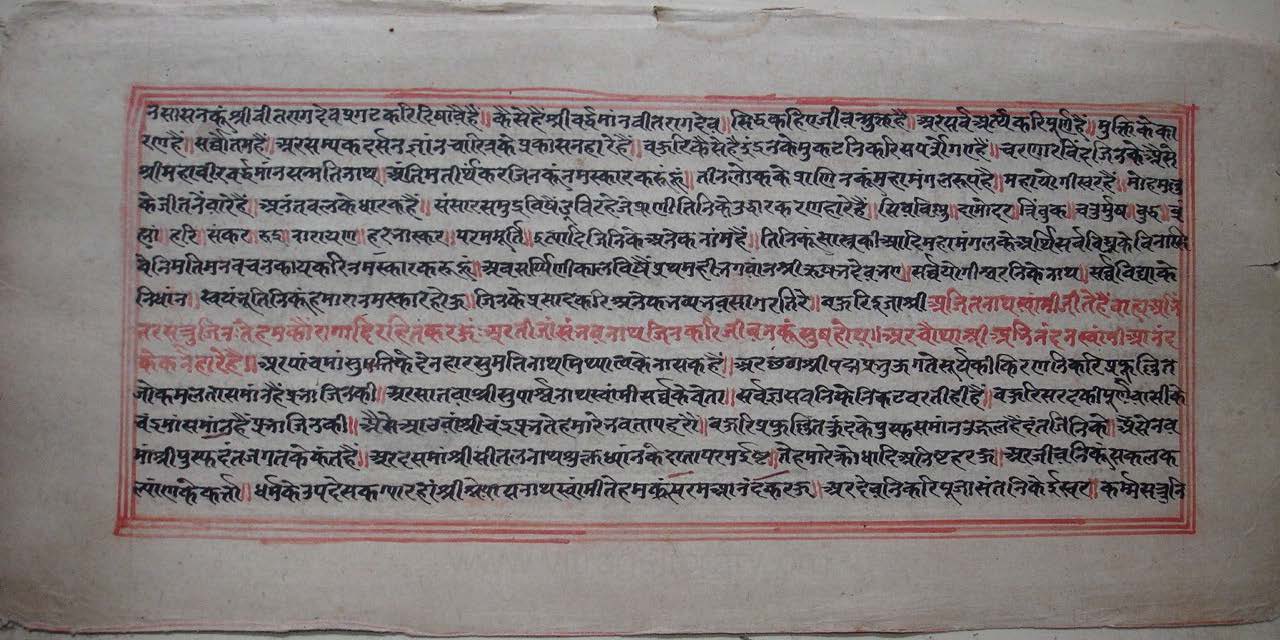 नसासनकूं श्रीवीतरागदेव प्रगट करि दिषावैहैं॥ कैसेहैं श्रीवर्द्धमांन वीतरागदेव॥ सिद्ध कहिए जीवन्मुक्तहै॥ अर सर्व अर्थ करि पूर्णहै॥ मुक्तिके का
रणहैं॥ सर्वोत्तमहैं॥ अर सम्यकदर्सन ज्ञांन चारित्रके प्रकासनहारेहैं॥ बऊरि कैसेहै इंद्रनके मुकटनि करि चरणारविंद जिनके ऐसे
श्रीमहावीर वर्द्धमांन सन्मतिनाथ॥ अंतिम तीर्थंकर जिनकूं नमस्कार करूंहूं॥ तीनलोकके प्राणिनकूं महामंगलरूपहै॥ महायोगीस्वरहैं॥ मोहमल्ल
के जीतनैंवारेहैं॥ अनंतबलके धारकहैं॥ संसारसमुद्रविषैं प्राणी तिनिके उद्धार करणहारेहैं॥ सिव विष्णु दामोदर त्रिंबुक चतुर्मुष बुद्ध ब्र
ह्मा हरि संकर रुद्र नारायण हर भास्कर परममूर्ति इत्यादि जिनिके अनेक नांमहैं॥ तिनिकूं सास्त्रकी आदि महामंगलके अर्थि सर्व विघ्नके विनासि
वेनिमति मन वचन काय करि नमस्कार करूंहूं॥ अवसर्प्पिणीकालविषैं प्रथमही भगवांन श्रीऋषभदेव भए॥ सर्व्व योगीश्वरनिके नाथ॥ सर्व्व विद्याके
निधांन॥ स्वयंभू तिनिकूं हमारा नमस्कार होऊ॥ जिनके प्रसाद करि अनेक भव्य भवसागर तिरे॥ बऊरि दूजा श्री अजितनाथस्वामी जीतेहैं बाह्य अभिं
तर सत्रु जिनि ते हमकौं रागादि रहित करऊ॥ अर तीजा संभवनाथ जिन करि जीवनकूं सुष होय॥ अर चौथा श्री अभिनंदनस्वामी आनंद
के करनहारेहैं॥ अर पांचमां सुमतिके देनहार सुमतिनाथ मिथ्यात्वके नासकहैं॥ अर छठा श्रीपद्मप्रभ ऊगते सूर्यकी किरण तिन करि प्रफुल्लित
जो कमल ता समांनहैं प्रभा जिनकी॥ अर सातवा श्रीसुपार्श्वनाथस्वांमी सर्व्वके वेता॥ सर्वज्ञ सबनिके निकटवरतीहीहैं॥ बऊरि सरदकी पूर्णवासीके
चंद्रमां समांनहैं प्रभा जिनकी॥ ऐसे आठवां श्रीचंद्रप्रभ ते हमारे भवताप हरो॥ बऊरि प्रफुल्लित कुंदके पुस्फ समांन उज्जलहैं दंत जिनिके॥ ऐसे नव
मां श्रीपुस्फदंत जगतके कंतहैं॥ अर दसमां श्रीसीतलनाथ शुक्लध्यांनके दाता परम इष्ट॥ ते हमारे क्रोधादि अनिष्ट हरऊ॥ अर जीवनिकूं सकल क
ल्यांणके कर्ता॥ धर्मके उपदेसक ग्यारहां श्रीश्रेयांसनाथस्वांमी ते हमकूं परम आनंद करऊ॥ अर देवनि करि पूजा संतनिके ईस्वर॥ कर्म्म सत्रुनि